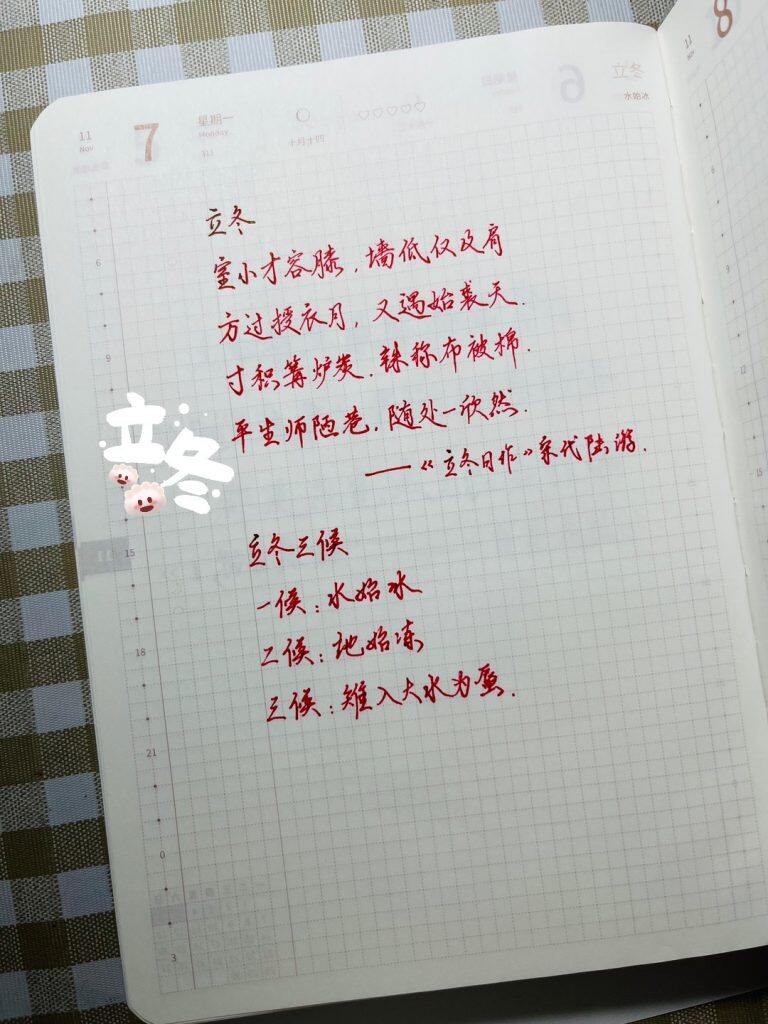 11
Nov
7
星期一
Monday
311
十月十四
6
立冬
水始冰
11
Nov
8
立冬
室小才容膝，墙低仅及肩
方过授衣月，又遇始裘天.
寸积篝炉炭.铢称布被棉.
平生师陋巷,随处一欣然.
——《立冬日作》宋代陆游.
立冬
立冬三候
一候：水始冰
二候：地始冻
三候：雉入大水为蜃.
6
9
15
18
21
0
3